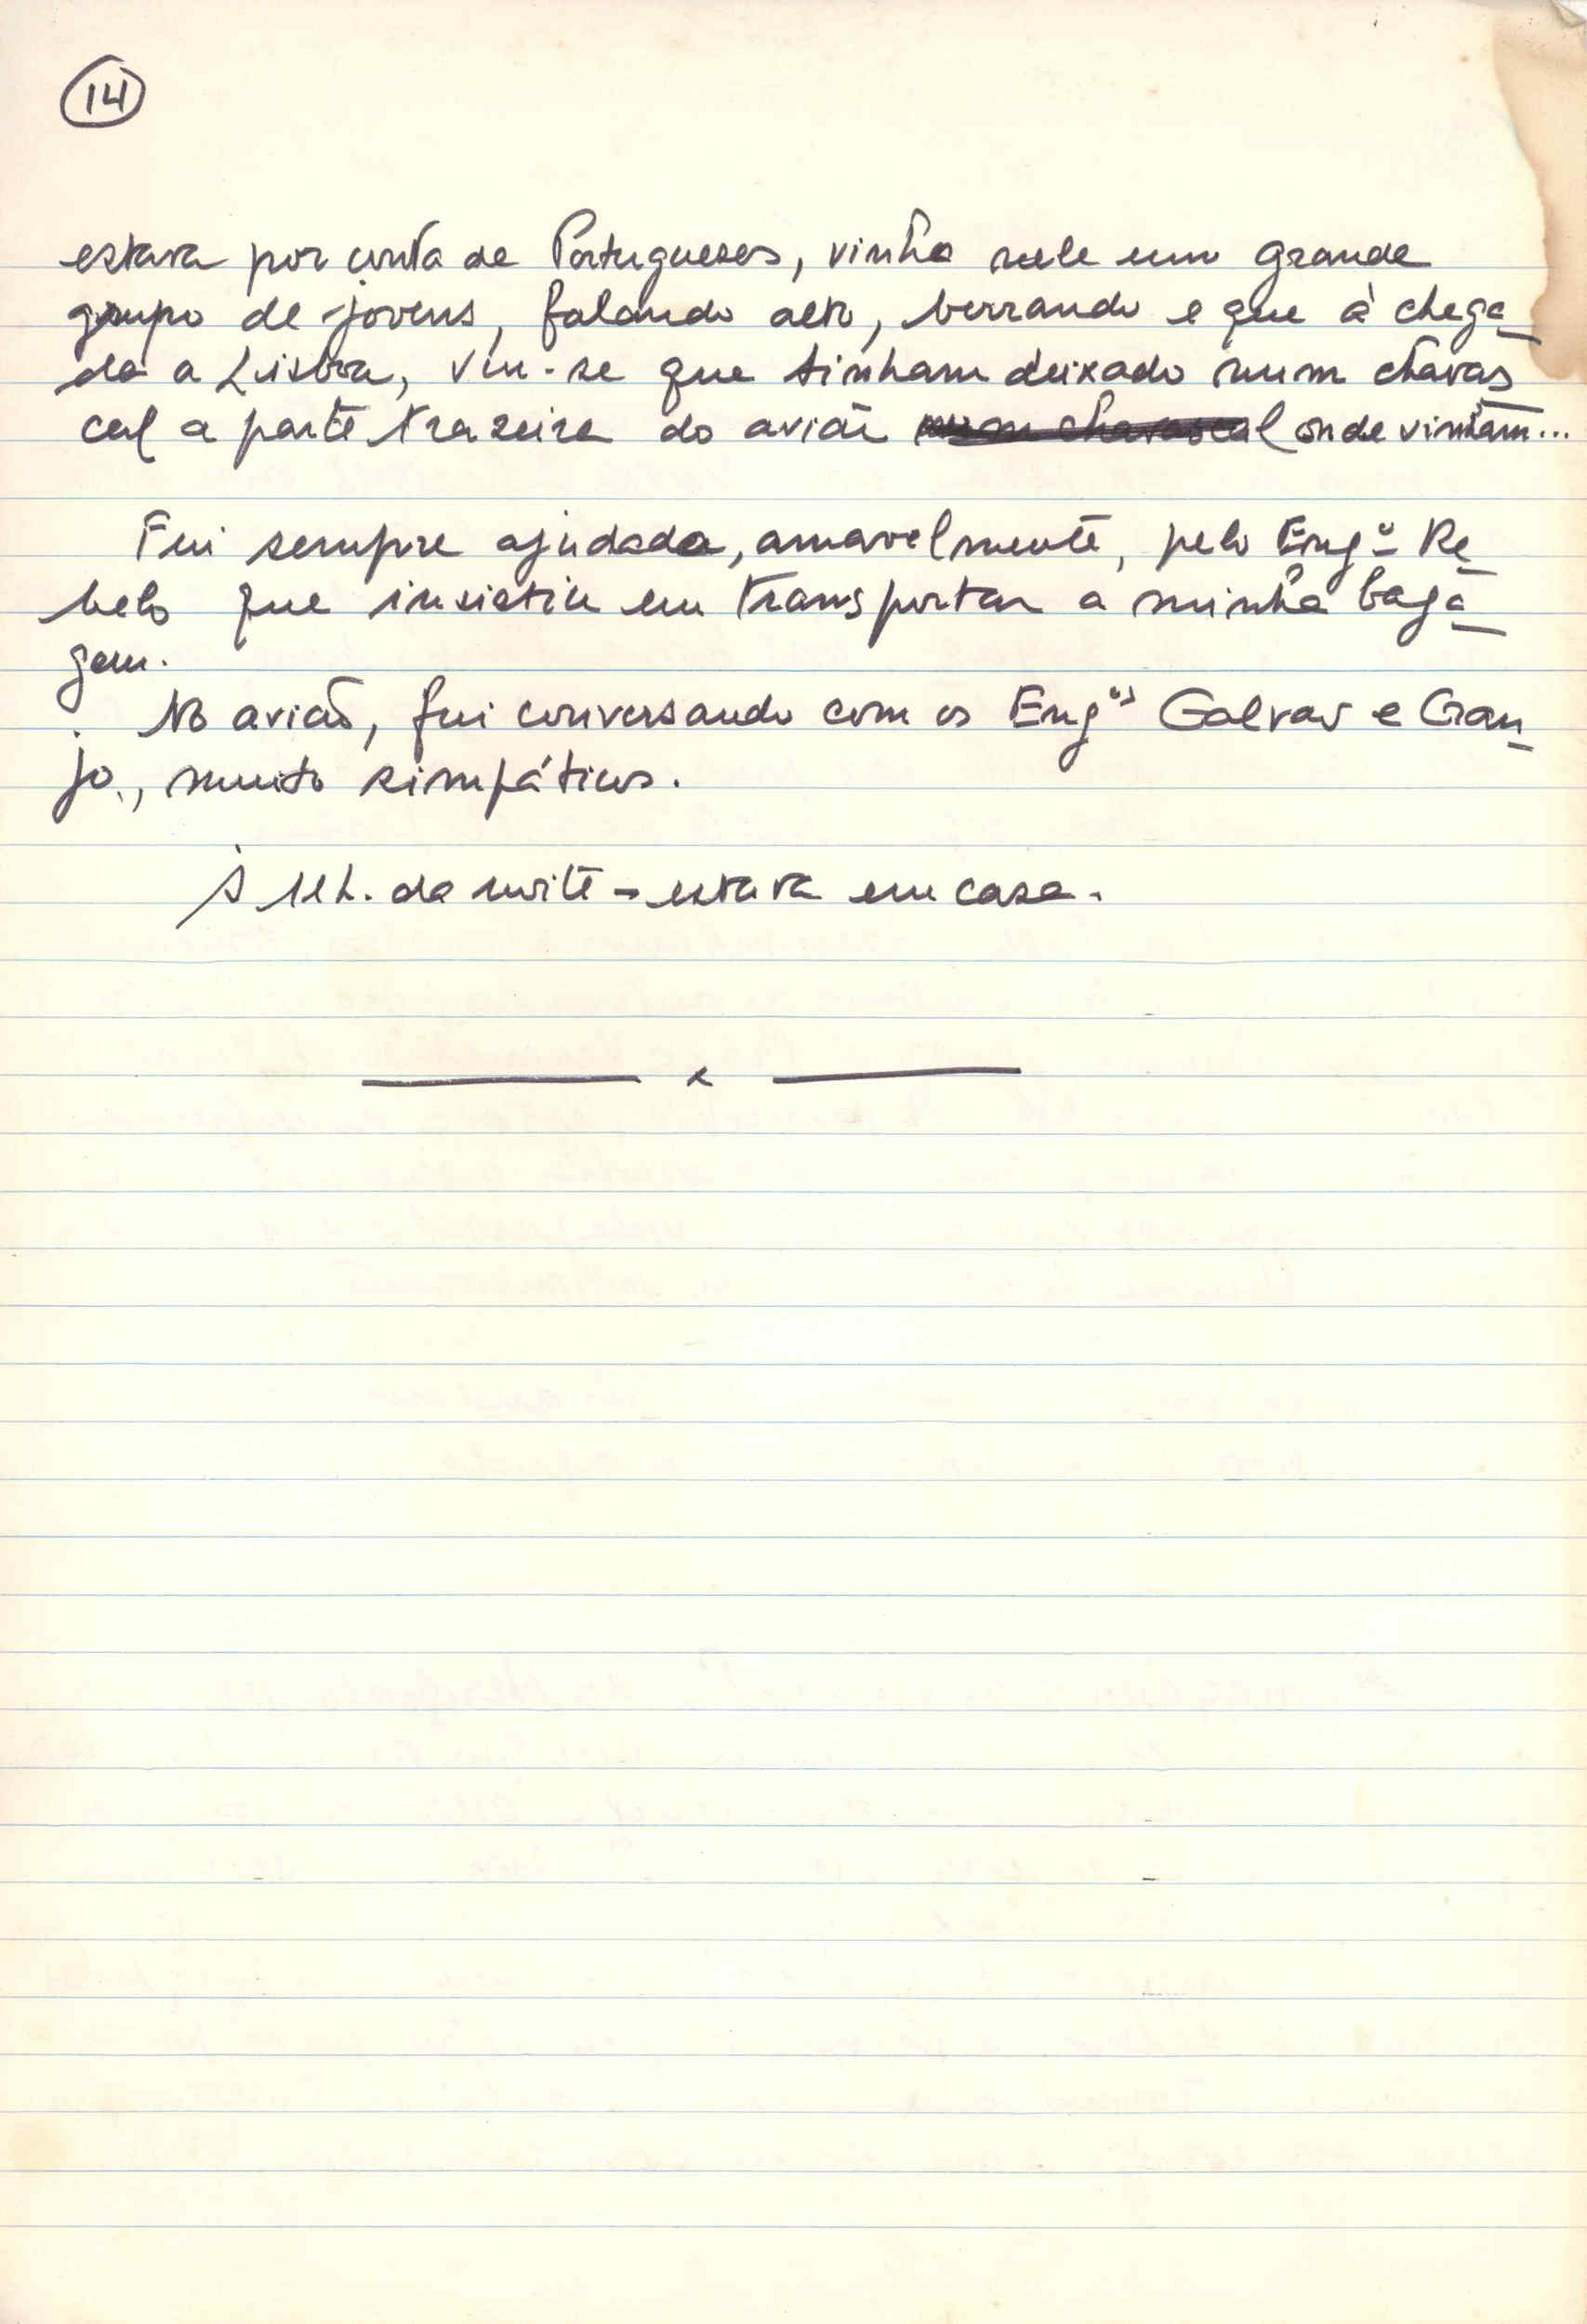 14
estava por conta de Portugueses, vinha nele um grande
grupo de jovens, falando alto, berrando e que à chega
da a Lisboa, viu-se que tinham deixado num chavas
cal a parte trazeira do avião num chavascal onde vinham...
Fui sempre ajudada, amavelmente, pelo Engº Re
belo que insistiu em transportar a minha baga
gem.
. No avião, fui conversando com os Engºs Galvão e Gran
jo, muito simpáticos.
Às 11h. da noite - estava em casa.
x